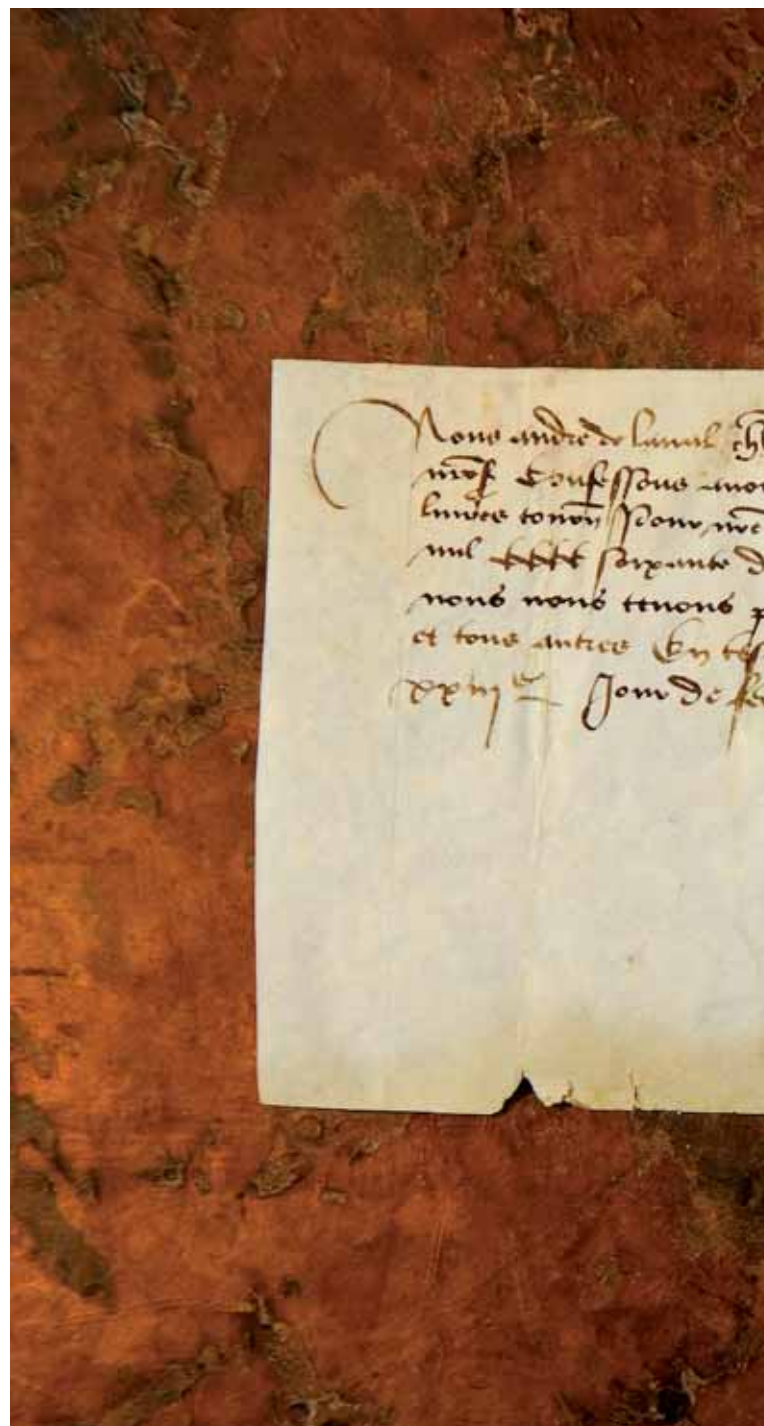 Nous andre de laual ch
Confessons auo
liures tourn pour nre
mil cccc soixante d
nous nous tenons p
et tous autres En tes
xxiii e Jour de fe